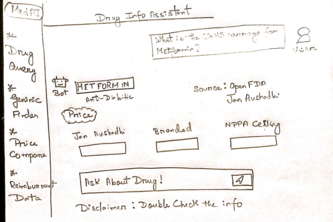 Menu
Drug Info Assistant
* Drug Query
* Generic Finder
* Price Compare
* Reimbursement Data
What is the price range for Metformin?
User
Bot
METFORMIN
Anti-Diabitic
Source: OpenFDA
Jan Aushadhi
Price
Jan Aushadhi
Branded
NPPA Ceiling
Ask About Drug!
Disclaimer: Double Check the info